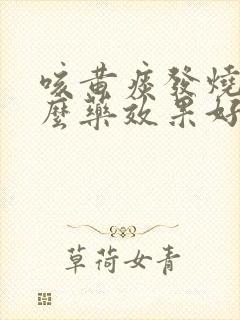 咳黃痰發燒
麼藥效果好
草荷女青